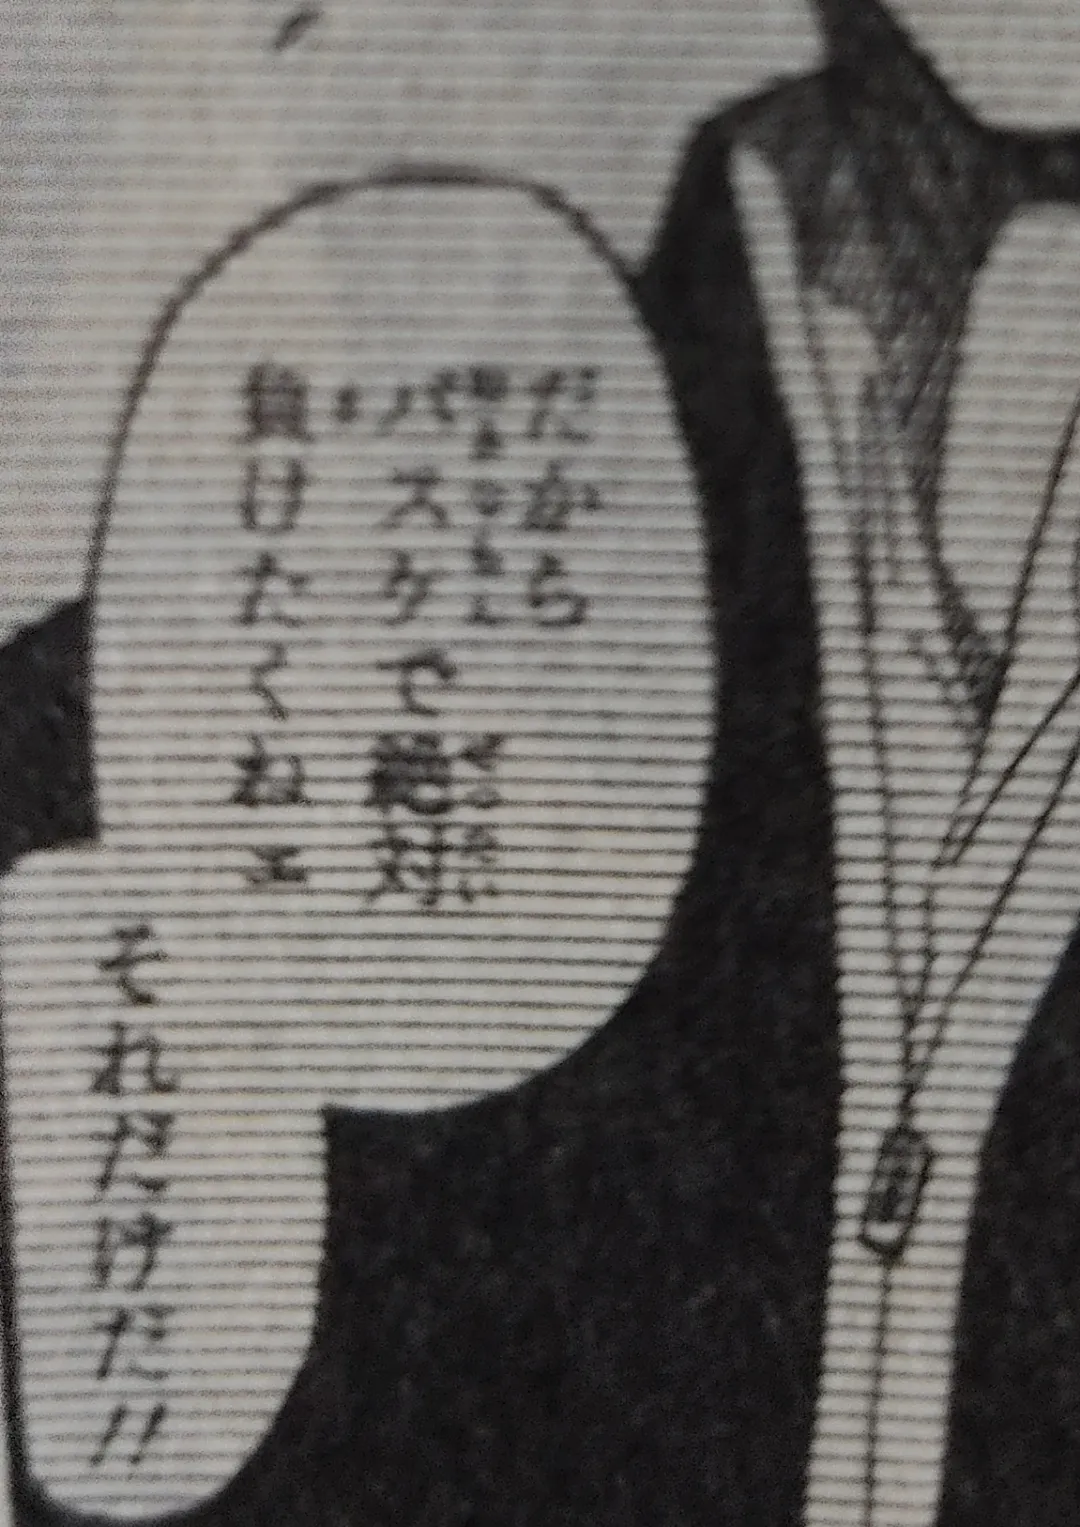 だから
バスケで絶対
負けたくねェ
それだけだ!!